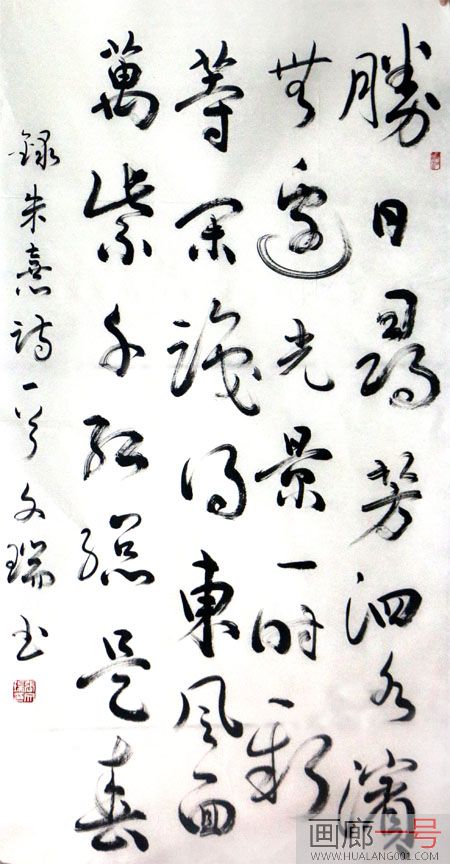 勝日尋芳泗水濱
無邊光景一時新
等閒識得東風面
萬紫千紅總是春
錄朱熹詩一首 文瑞書
画廊一号
WWW.HUALANG001.COM